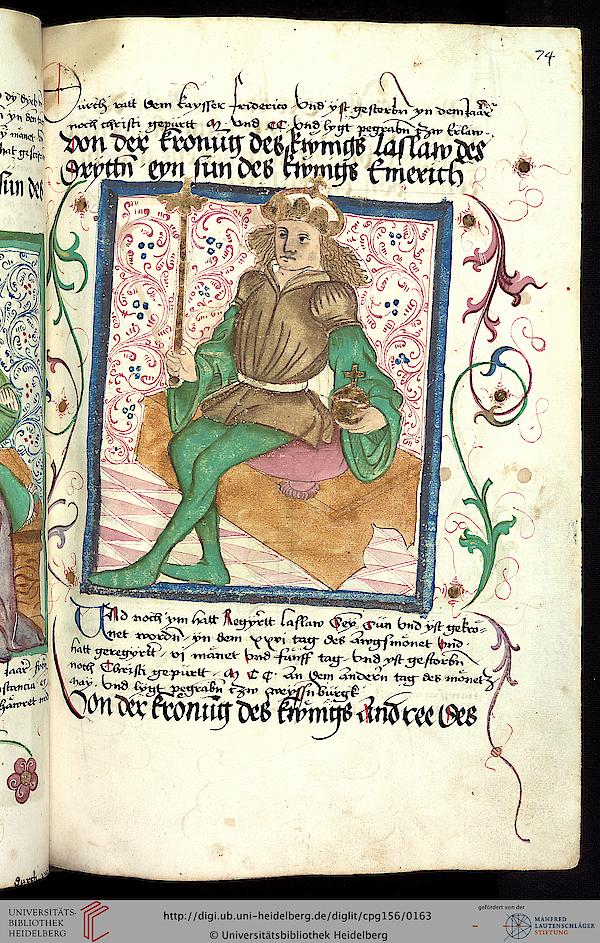 74
Durch ratt dem kaysser friderico vnd yst gestorbn yn dem iaar
noch christi gepurtt M vnd CC vnd lygt pegrabn czw Erlaw
Von der kronug des kwnigs laslaw des
Dryttn eyn sun des kwnigs Emerich
Und noch ym hatt Regyrtt laslaw Sey Sun vnd yst gekro-
net wordn yn dem xxvi tag des Awgsmonet vnd
hatt geregyrtt vi monet vnd funff tag vnd yst gestorbn
noch Christi gepurtt M CC An dem andern tag des monetz
may vnd lygt pegrabn czw
Von der kronug des kwnigs Andree des
UNIVERSITÄTS-
BIBLIOTHEK
HEIDELBERG
http://digi.ub.uni-heidelberg.de/diglit/cpg156/0163
© Universitätsbibliothek Heidelberg
gefördert von der
MANFRED
LAUTENSCHLÄGER
STIFTUNG